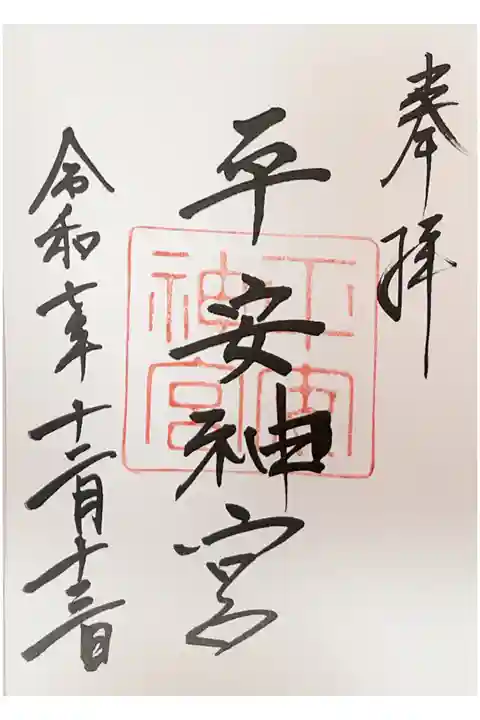 奉拝
平安神宮
平安神宮
令和七年十二月十三日